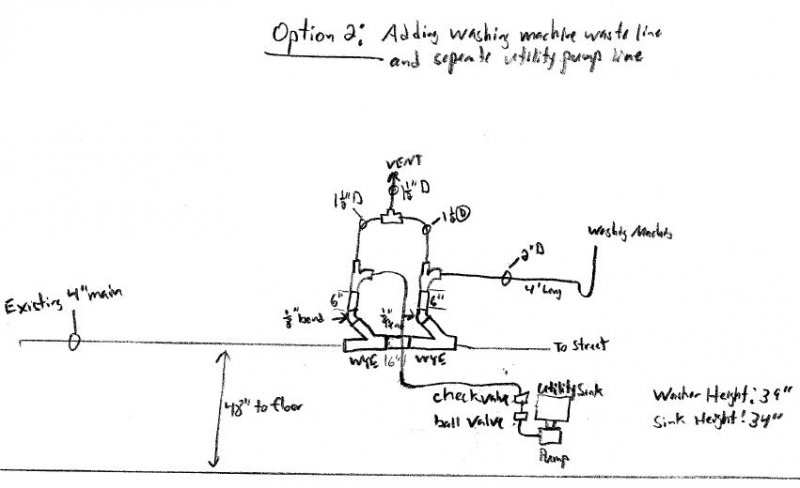 Option 2: Adding washing machine waste line
and seperate utility pump line
VENT
1½" D
1½" D
1½ D
Washing Machine
2" D
4' Long
Existing 4" main
6"
6"
⅛" bend
WYE
16"
WYE
To Street
48" to floor
check valve
ball valve
Utility Sink
Pump
Washer Height: 39"
Sink Height: 34"